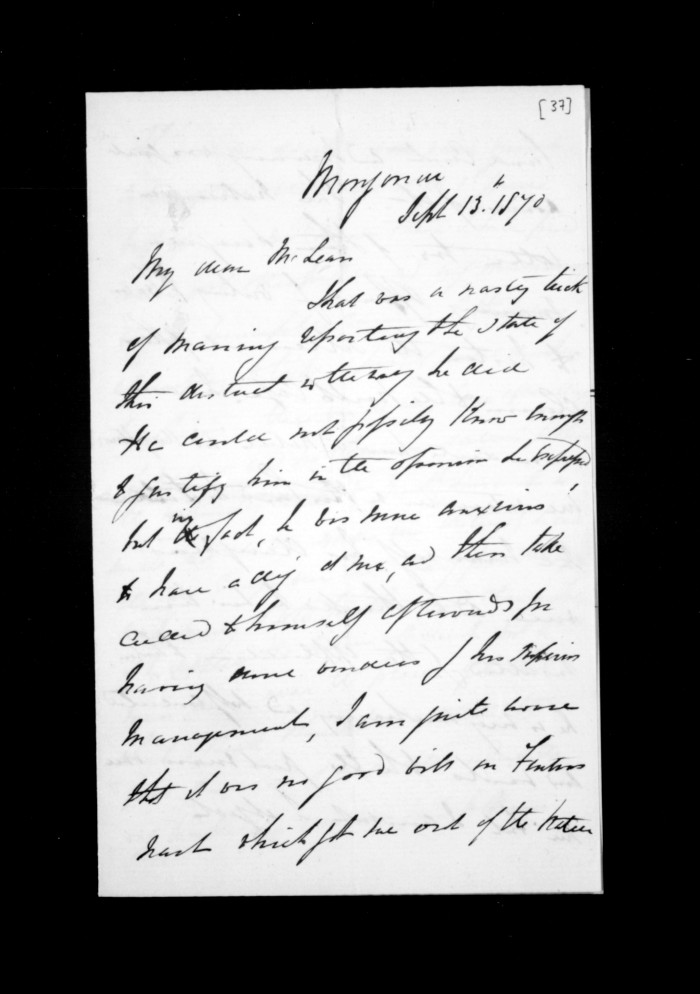 [37]
Mongonui
Sept 13.th 1870
My dear McLean
That was a nasty trick
of Manning reporting the state of
this district in the way he did
He could not possibly know enough
to justify him in the opinion he expressed,
but in fact, he was more anxious
to have a dig at me, and then take
credit to himself afterwards for
having done wonders by his superior
management, I am quite aware
that it was no good will on
part which got me out of the Native